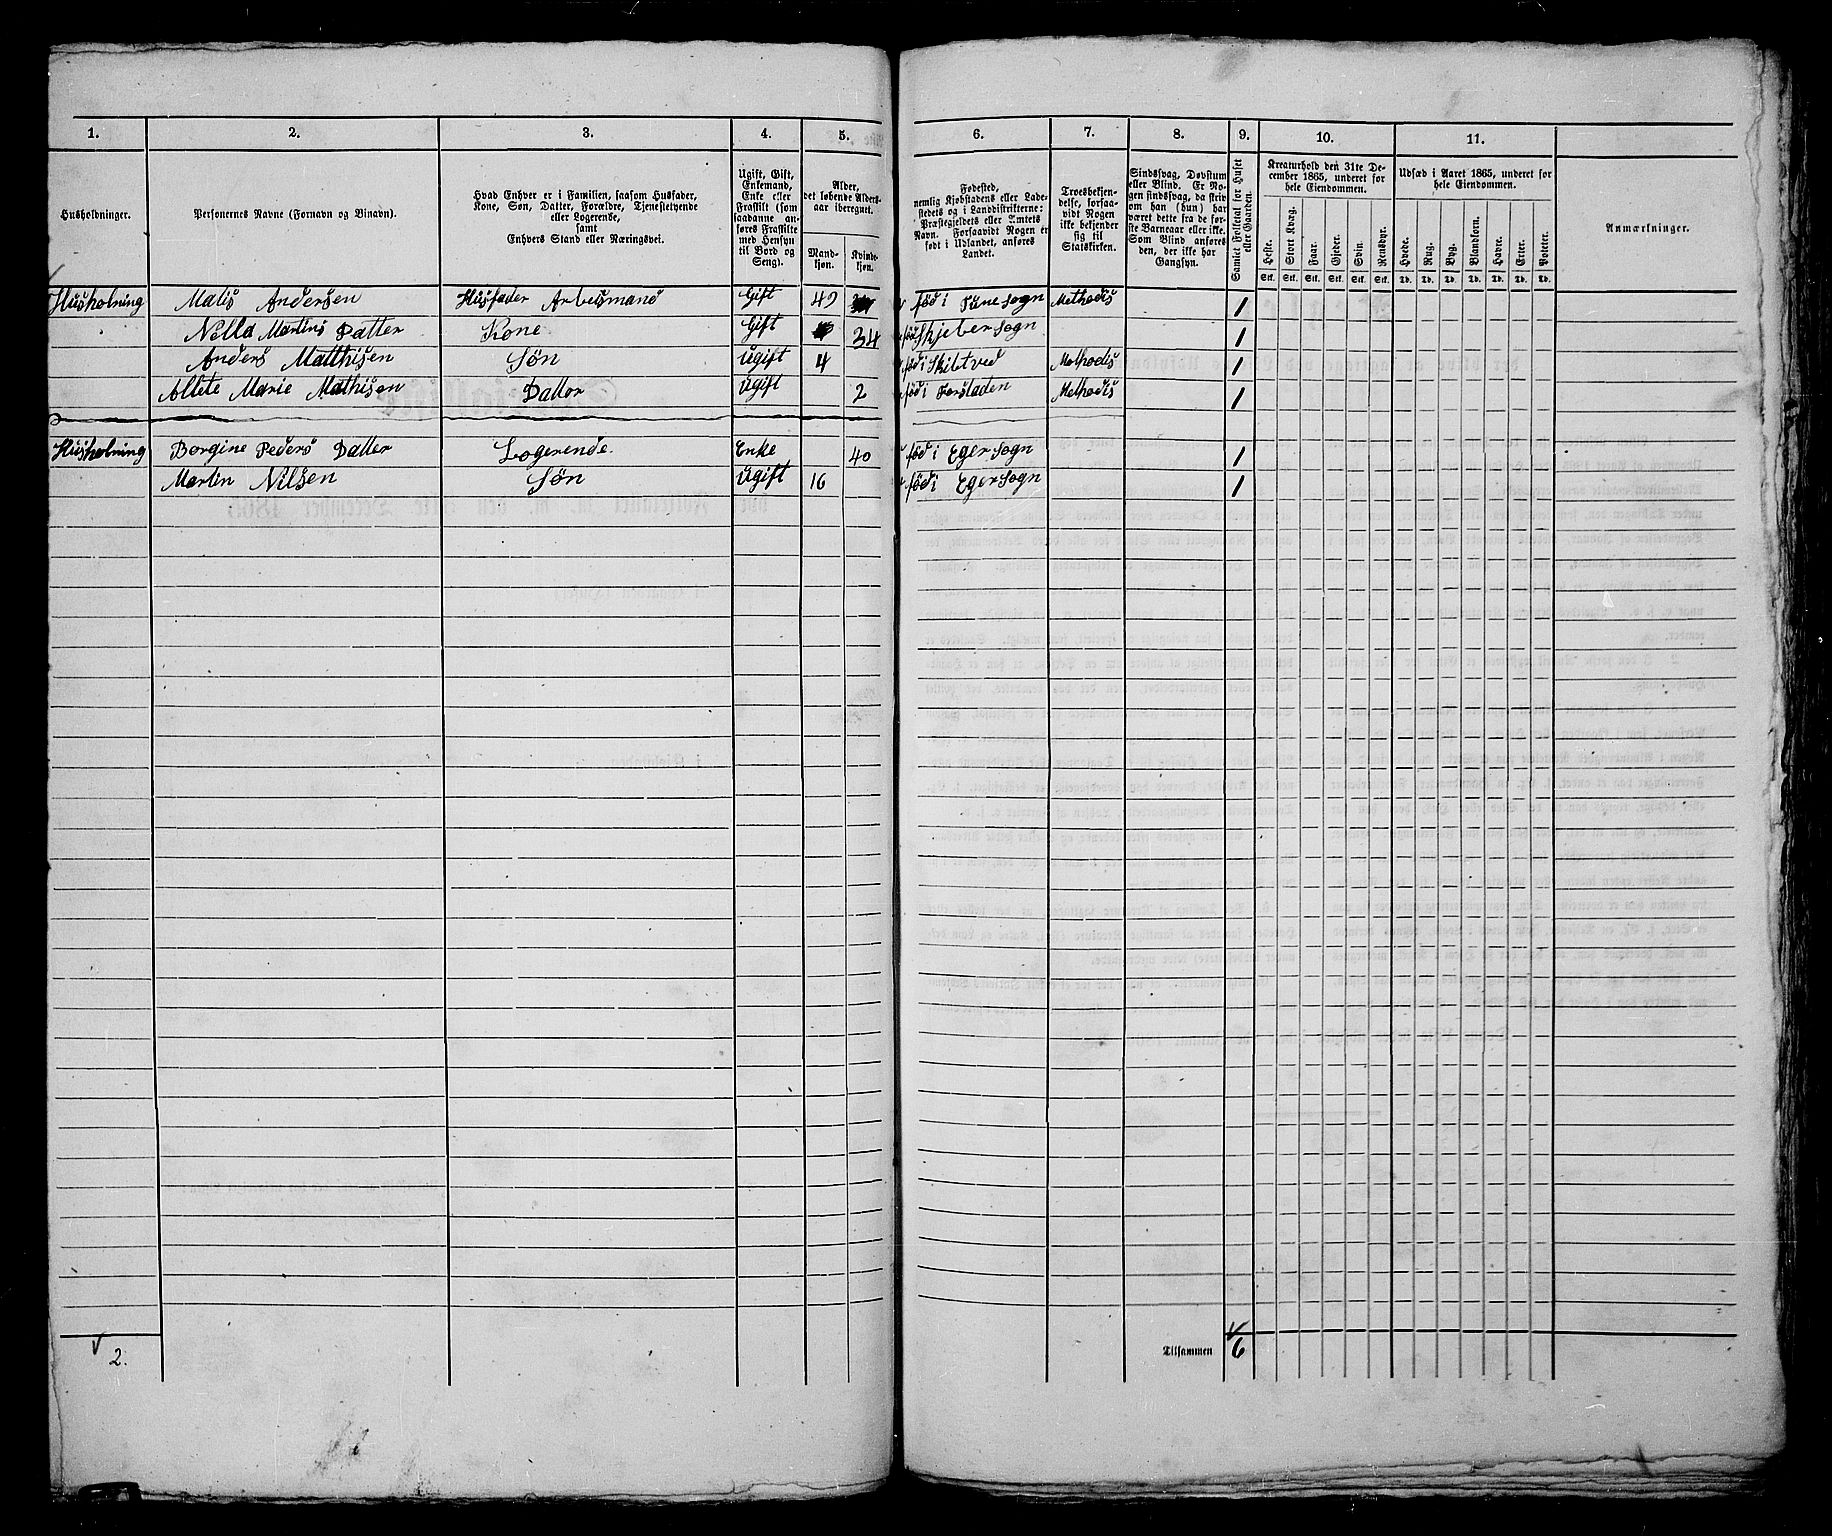 1. 2. 3. 4. 5. 6. 7. 8. 9. 10. 11.
Husholdninger.
Personernes Navne (Fornavn og Binavn).
Hvad Enhver er i Familien, saasom Husfader,
Kone, Søn, Datter, Forældre, Tjenestetyende
eller Logerende,
samt
Enhvers Stand eller Næringsvei.
Ugift, Gift,
Enkemand,
Enke eller
Fraskilt (som
saadanne an-
føres Fraskilte
med Hensyn
til Bord og
Seng).
Alder,
det løbende Alders-
aar iberegnet.
Mand-
kjøn.
Kvinde-
kjøn.
Fødested,
nemlig Kjøbstadens eller Lade-
stedets og i Landdistrikterne:
Præstegjeldets eller Amtets
Navn. Forsaavidt Nogen er
født i Udlandet, anføres
Landet.
Troesbekjen-
delse, forsaa-
vidt Nogen
ikke bekjender
sig til
Statskirken.
Sindssvag, Døvstum
eller Blind. Er No-
gen sindssvag, da skriv
om han (hun) har
været dette fra de før-
ste Barneaar eller ikke.
Som Blind anføres
den, der ikke har
Gangsyn.
Samlet Folketal for Huset
eller Gaarden.
Kreaturhold den 31te De-
cember 1865, underet for
hele Eiendommen.
Heste. Stort Kvæg. Faar. Gjeder. Svin. Rensdyr.
Stk. Stk. Stk. Stk. Stk. Stk.
Udsæd i Aaret 1865, underet for
hele Eiendommen.
Hvede. Rug. Byg. Blandkorn. Havre. Erter. Poteter.
Td. Td. Td. Td. Td. Td. Td.
Anmærkninger.
Husholning Matis Andersen Husfader Arbeismand Gift 49 fød i Tune sogn Methodis 1
Nilla Martins Datter Kone Gift 34 fød Skjeber sogn 1
Anders Matthisen Søn Ugift 4 fød i Skibtved Methodis 1
Allete Marie Mathisen Datter Ugift 2 fød i Forstaden Methodis 1
Husholning Borgine Peders Datter Logerende Enke 40 fød i Eger sogn 1
Martin Nilsen Søn Ugift 16 fød i Eger sogn 1
2. Tilsammen 6